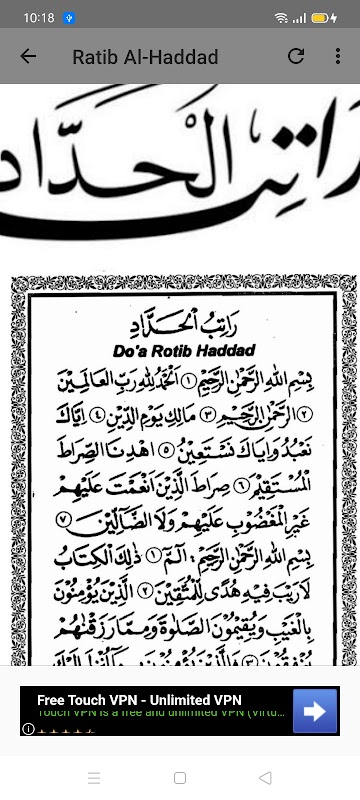 10:18
Ratib Al-Haddad
راتب الحداد
رَاتِبُ الْحَدَّادِ
Do'a Rotib Haddad
بِسْمِ اللهِ الرَّحْمٰنِ الرَّحِيْمِ ① اَلْحَمْدُ لِلّٰهِ رَبِّ الْعَالَمِيْنَ
② الرَّحْمٰنِ الرَّحِيْمِ ③ مَالِكِ يَوْمِ الدِّيْنِ ④ اِيَّاكَ
نَعْبُدُ وَاِيَّاكَ نَسْتَعِيْنُ ⑤ اهْدِنَا الصِّرَاطَ
الْمُسْتَقِيْمَ ⑥ صِرَاطَ الَّذِيْنَ اَنْعَمْتَ عَلَيْهِمْ
غَيْرِ الْمَغْضُوْبِ عَلَيْهِمْ وَلَا الضَّالِّيْنَ ⑦
بِسْمِ اللهِ الرَّحْمٰنِ الرَّحِيْمِ : الٓمّٓ ① ذٰلِكَ الْكِتَابُ
لَا رَيْبَ فِيْهِ هُدًى لِلْمُتَّقِيْنَ ② الَّذِيْنَ يُؤْمِنُوْنَ
بِالْغَيْبِ وَيُقِيْمُوْنَ الصَّلٰوةَ وَمِمَّا رَزَقْنٰهُمْ
يُنْفِقُوْنَ ③ وَالَّذِيْنَ يُؤْمِنُوْنَ بِمَآ اُنْزِلَ اِلَيْكَ
Free Touch VPN - Unlimited VPN
Touch VPN is a free and unlimited VPN (Virtu...